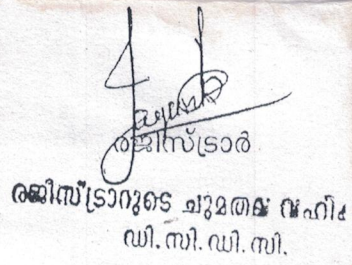 രജിസ്ട്രാർ
രജിസ്ട്രാറുടെ ചുമതല വഹി
ഡി.സി.ഡി.സി.